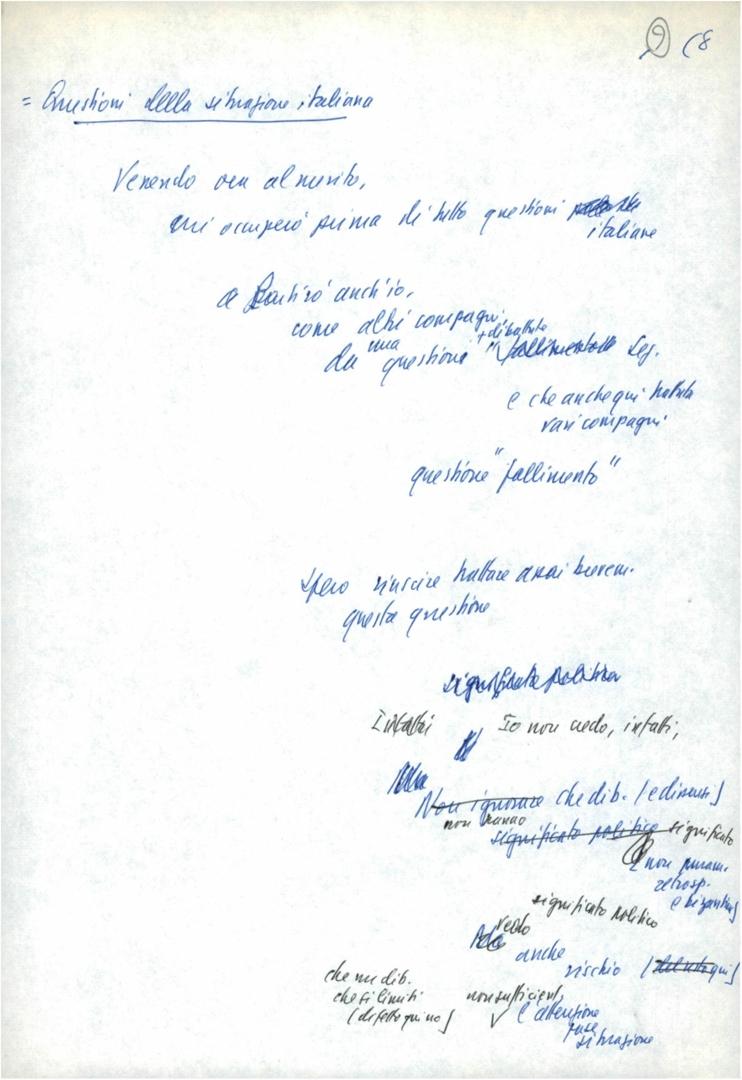 9 (8
= Questioni della situazione italiana
Venendo ora al merito,
mi occuperò prima di tutto questioni
italiane
Partirò anch'io,
come altri compagni,
+ dibattuta
da una questione " fallimento Seg.
e che anche qui trattata
vari compagni
questione "fallimento"
Spero riuscire trattare assai brevem.
questa questione
significato politico
Infatti Io non credo, infatti,
Non ignorare che dib. (e dissensi)
non hanno
significato politico significato
non puram.
retrosp.
e bizantino
significato politico
vedo
anche
rischio
che un dib.
che si limiti
non sufficient.
e attenzione
fase
situazione